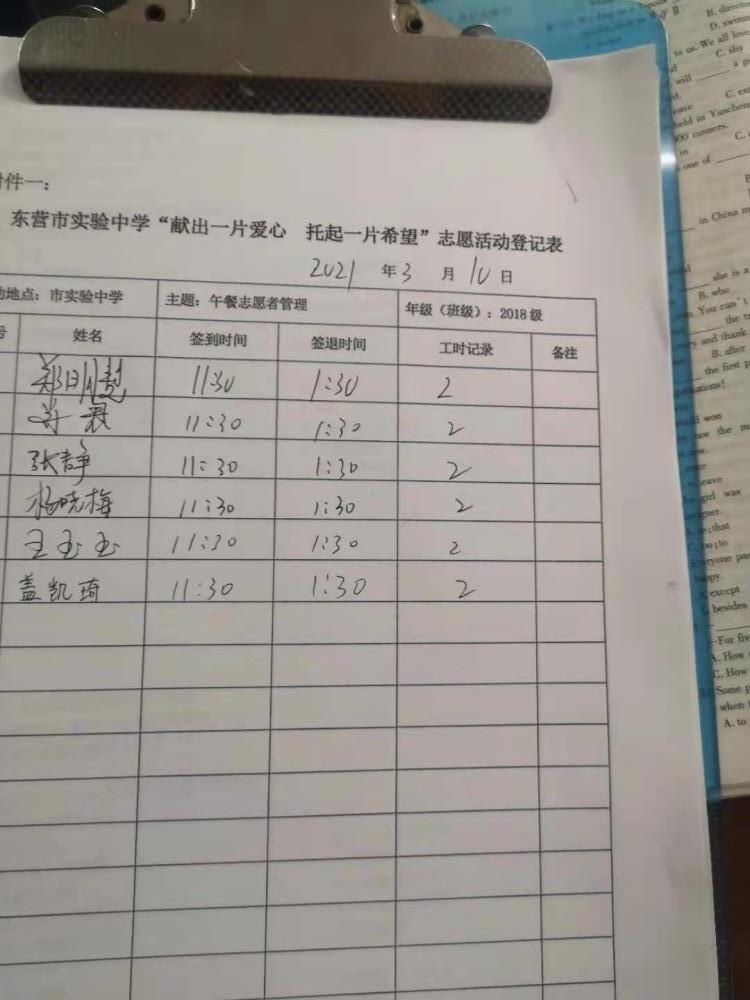 附件一：
东营市实验中学“献出一片爱心 托起一片希望”志愿活动登记表
2021 年 3 月 10 日
动地点：市实验中学 主题：午餐志愿者管理 年级（班级）：2018级
号 姓名 签到时间 签退时间 工时记录 备注
11:30 1:30 2
11:30 1:30 2
张静 11:30 1:30 2
杨晓梅 11:30 1:30 2
王玉玉 11:30 1:30 2
盖凯琦 11:30 1:30 2
B. direct
D. swimm
to us. We all love
C. shy
will ____ a g
C. en
eave
held in Yancheng
00 runners.
in
one of ____
in China m
she is a
B. who
You can't
the tr
and thank
B. after
the first p
won
saw the m
leave
girl was
that
to
Everyone pa
happy.
A. except
C. besides
—For five
A. How
C. How
Some p
when
A. to